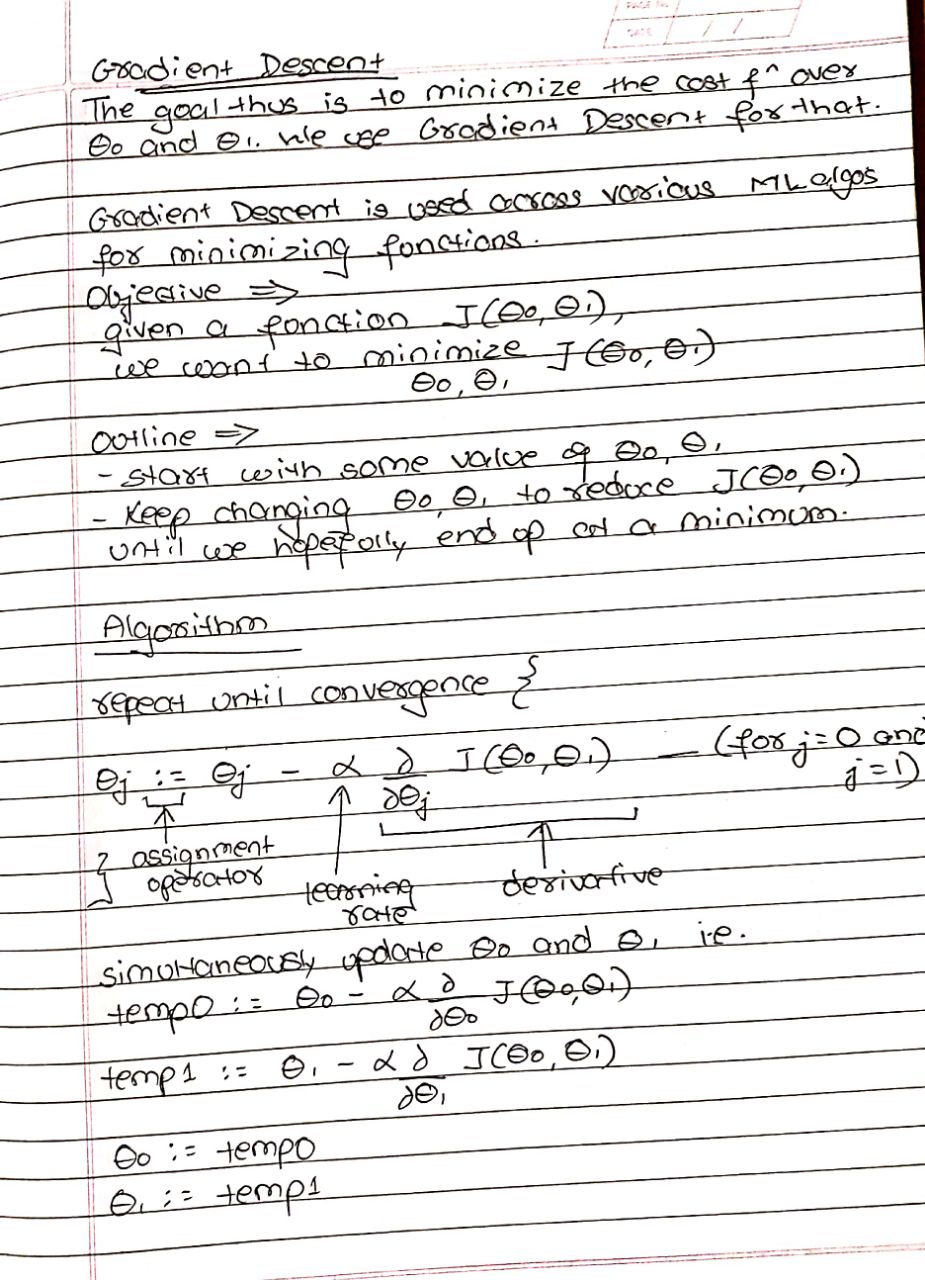 PAGE No.
DATE / /
Gradient Descent
The goal thus is to minimize the cost fⁿ over
θ₀ and θ₁. We use Gradient Descent for that.
Gradient Descent is used across various ML algos
for minimizing functions.
Objective ⇒
given a function J(θ₀, θ₁),
we want to minimize J(θ₀, θ₁)
θ₀, θ₁
outline ⇒
- start with some value of θ₀, θ₁
- Keep changing θ₀, θ₁ to reduce J(θ₀, θ₁)
until we hopefully end up at a minimum.
Algorithm
repeat until convergence {
θj := θj - α ∂/∂θj J(θ₀, θ₁) — (for j=0 and
j=1)
} assignment
operator
learning
rate
derivative
simultaneously update θ₀ and θ₁ i.e.
temp0 := θ₀ - α ∂/∂θ₀ J(θ₀, θ₁)
temp1 := θ₁ - α ∂/∂θ₁ J(θ₀, θ₁)
θ₀ := temp0
θ₁ := temp1